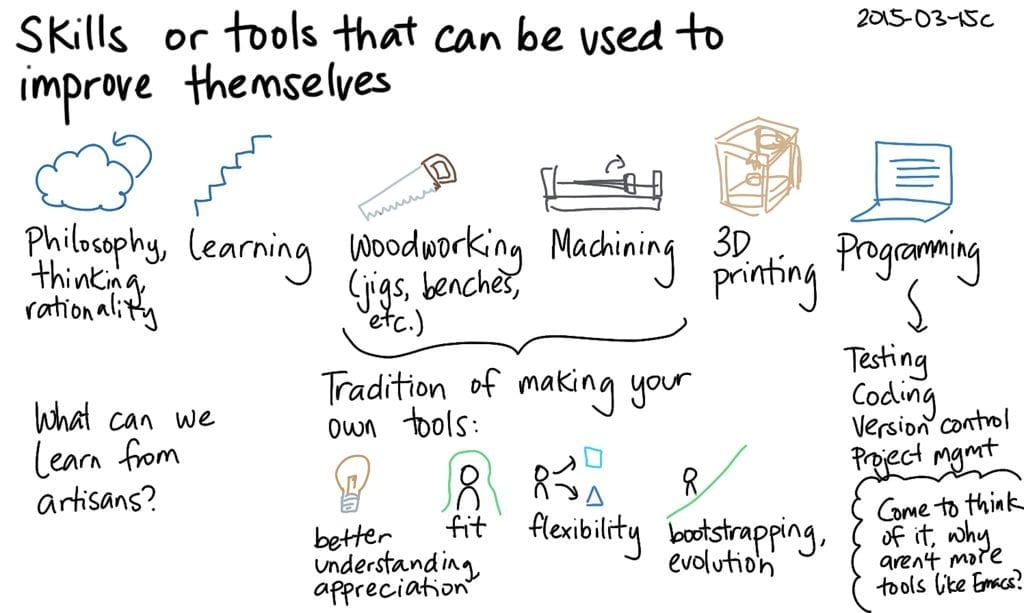 Skills or tools that can be used to
improve themselves
2015-03-15c
Philosophy,
thinking,
rationality
Learning
Woodworking
(jigs, benches,
etc.)
Machining
3D
printing
Programming
Testing
Coding
Version control
Project mgmt
Come to think
of it, why
aren't more
tools like Emacs?
Tradition of making your
own tools:
What can we
learn from
artisans?
better
understanding,
appreciation
fit
flexibility
bootstrapping,
evolution